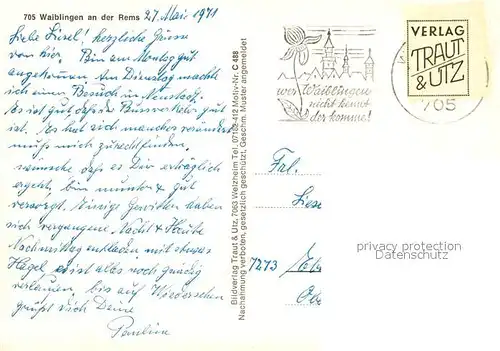 705 Waiblingen an der Rems
27. Mai 1971
Liebe Liesel, herzliche Grüsse
von hier. Bin am Montag gut
angekommen. Am Dienstag machte
ich einen Besuch in Neustadt.
Es ist gut daß der Busverkehr gut
ist. Es hat sich manches verändert
muß mich zurechtfinden,
wünsche daß es Dir erträglich
ergeht, bin munter & gut
versorgt. Einige Gewitter haben
sich vergangene Nacht & Heute
Nachmittag entladen mit etwas
Hagel, es ist alles noch gnädig
verlaufen, bis auf Wiedersehen
grüßt Dich Deine
Pauline
Bildverlag Traut & Utz, 7063 Welzheim Tel. 07182-412 Motiv-Nr. C 488
Nachahmung verboten, gesetzlich geschützt, Geschm. Muster angemeldet
wer Waiblingen
nicht kennt
der komme!
VERLAG
TRAUT
& UTZ
705
Frl.
7273
privacy protection
Datenschutz